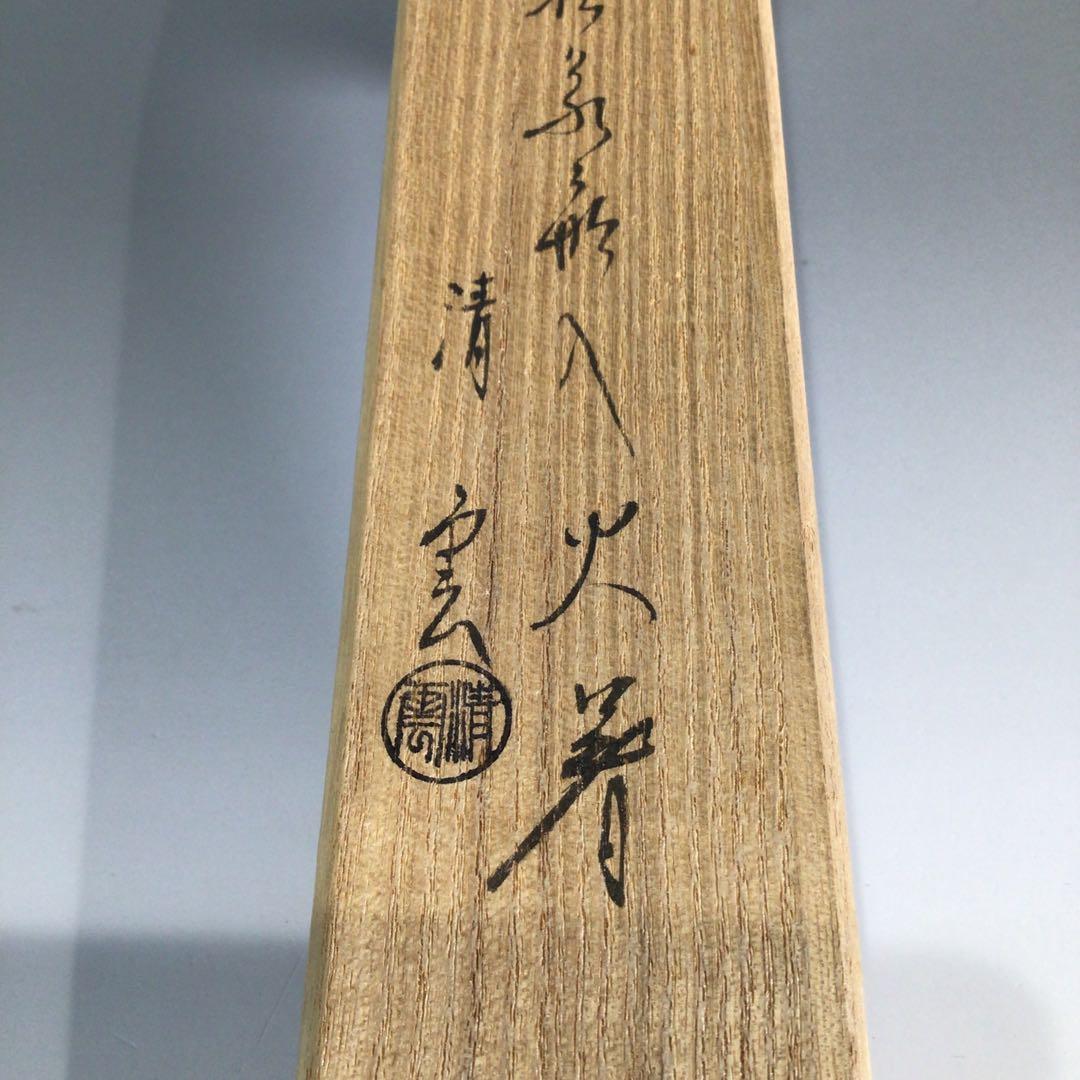 象彫入火箸
清雲
清雲